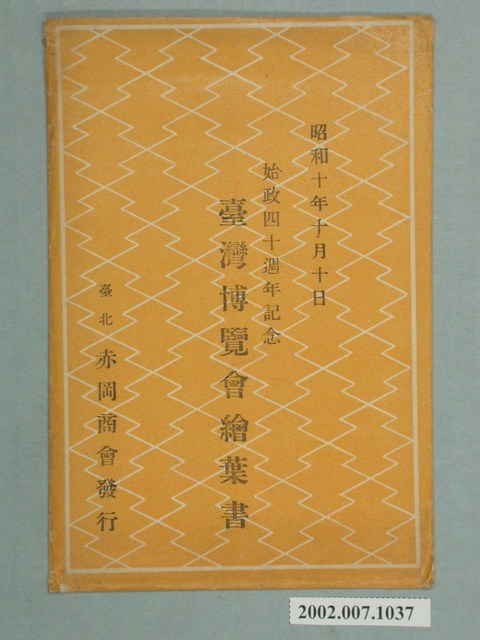 昭和十年十月十日
始政四十週年記念
臺灣博覽會繪葉書
臺北 赤岡商會發行
2002.007.1037